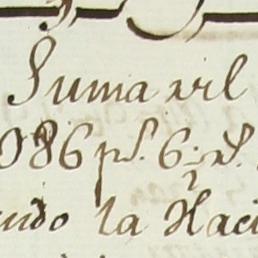 Suma xrl
086 ps. 6 rs.
endo la Haci